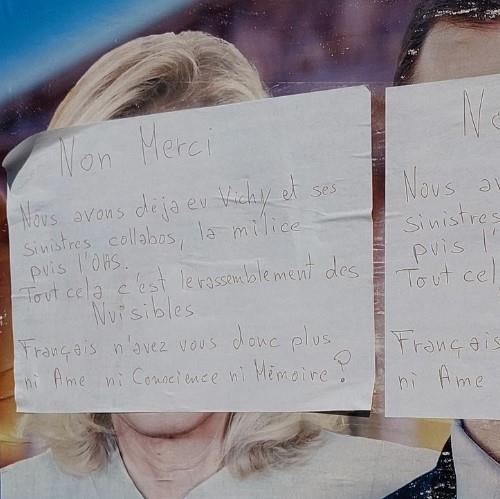 Non Merci
Nous avons déja eu Vichy et ses
sinistres collabos, la milice
puis l'OAS.
Tout cela c'est le rassemblement des
Nuisibles
Français n'avez vous donc plus
ni Ame ni Conscience ni Mémoire ?
No
Nous av
sinistres
puis l'
Tout cel
Français
ni Ame